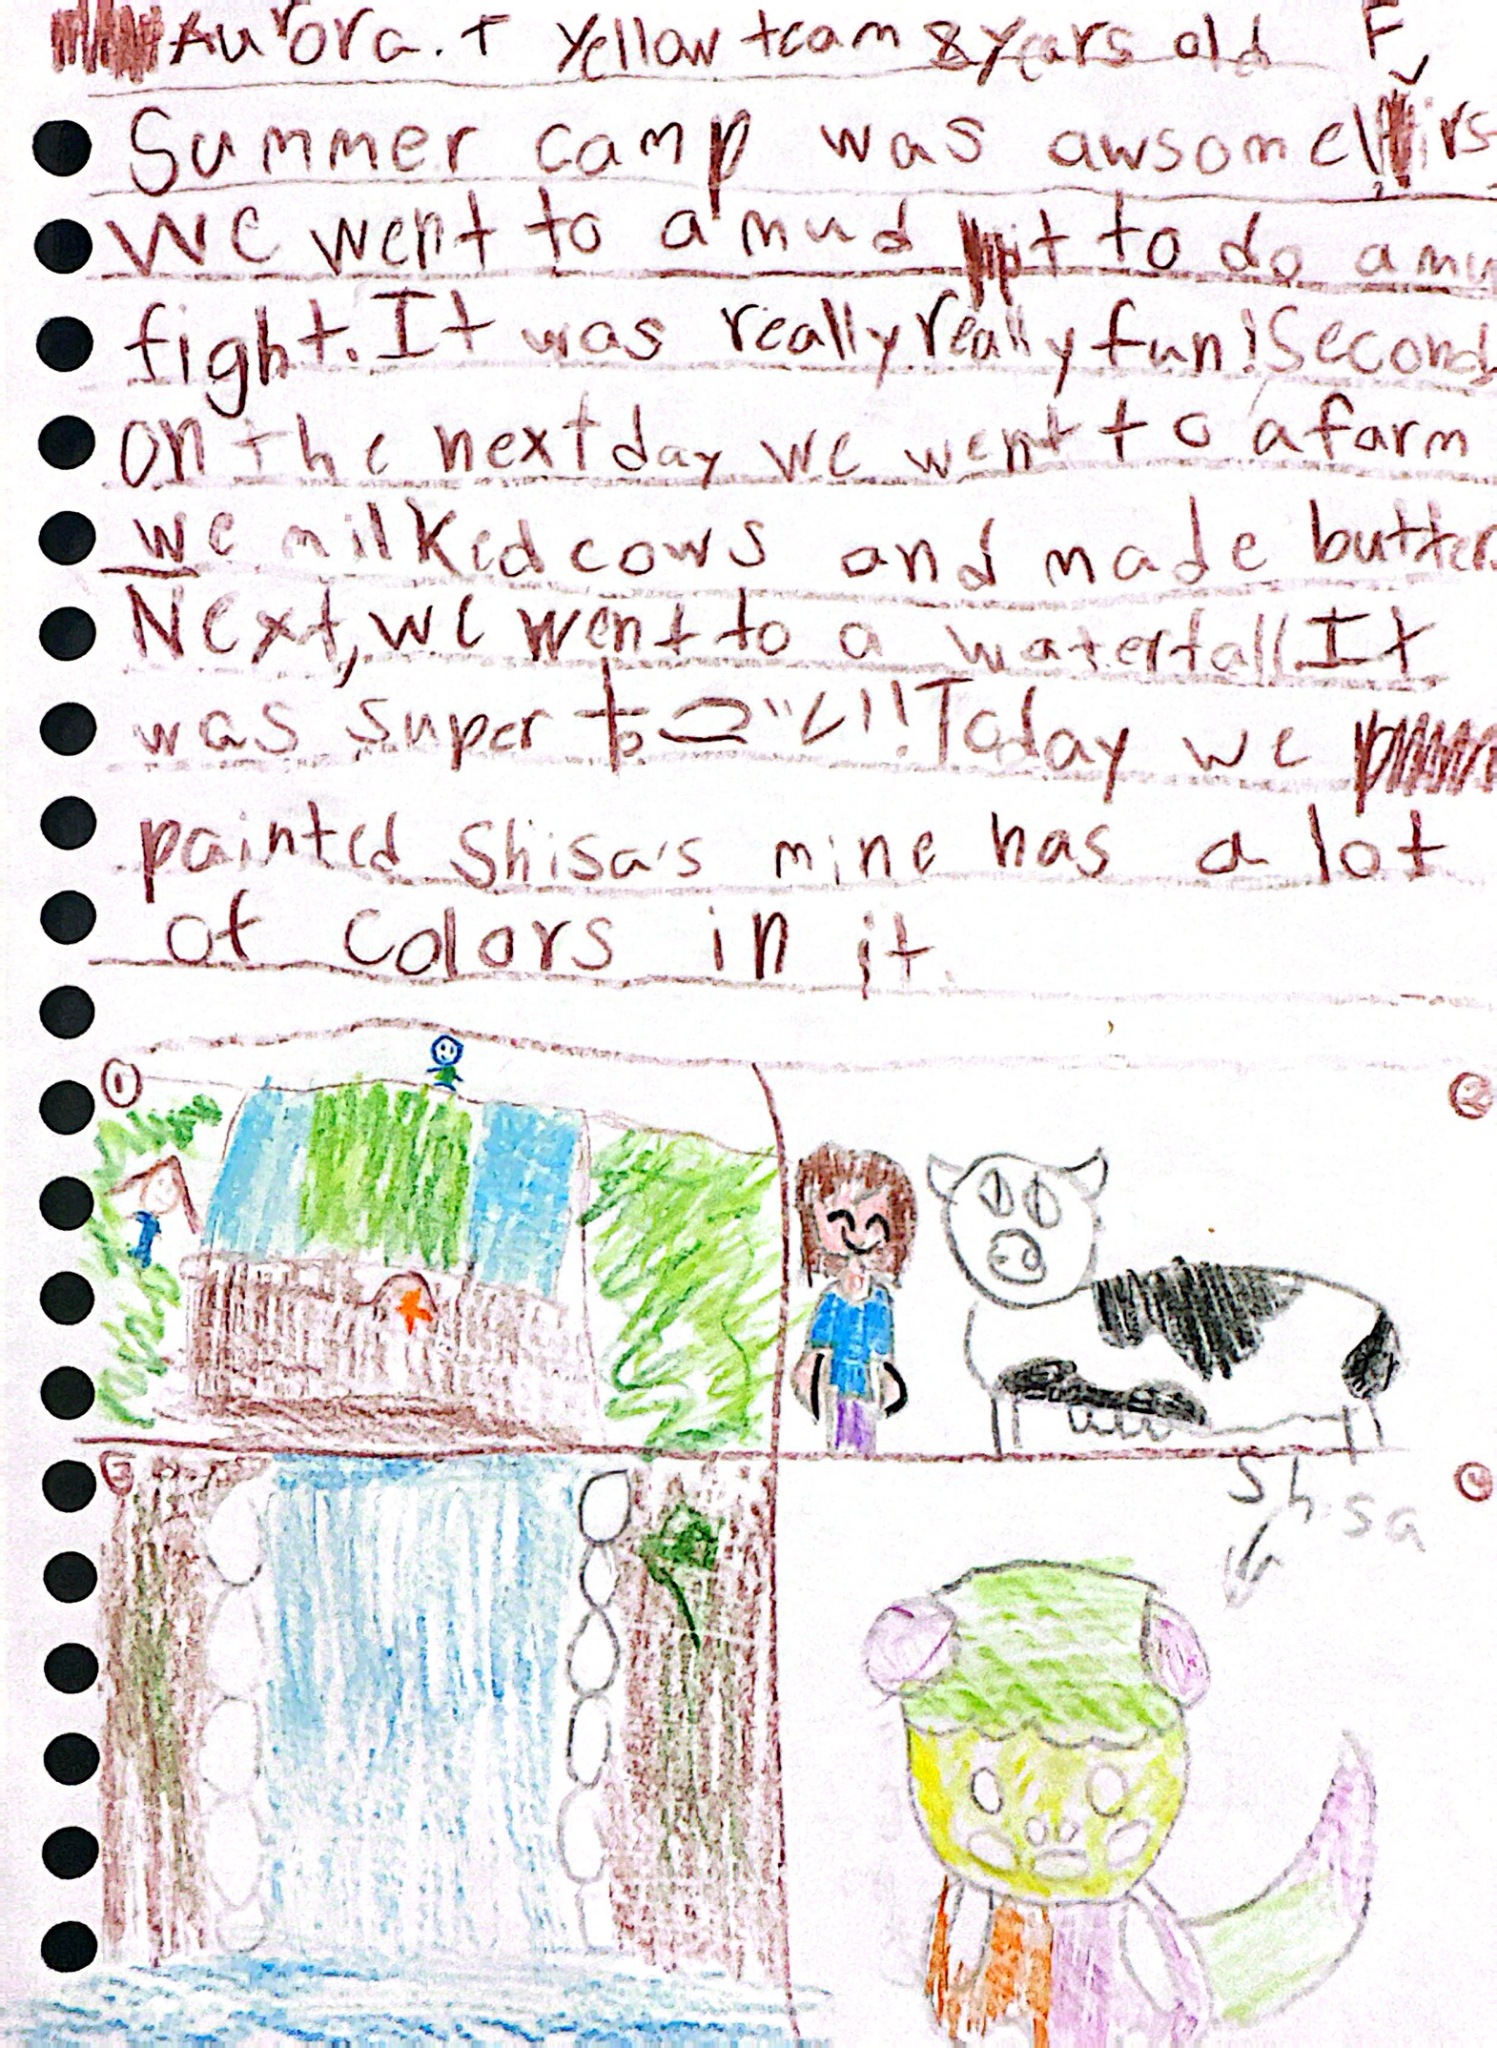 Aurora. T Yellow team 8 years old F
Summer camp was awsome! irs
we went to a mud pit to do a mu
fight. It was really really fun! Second
on the next day we went to a farm
we milked cows and made butter.
Next, we went to a waterfall. It
was super !! Today we
painted Shisa's mine has a lot
of colors in it.
1
2
3
4
Shisa